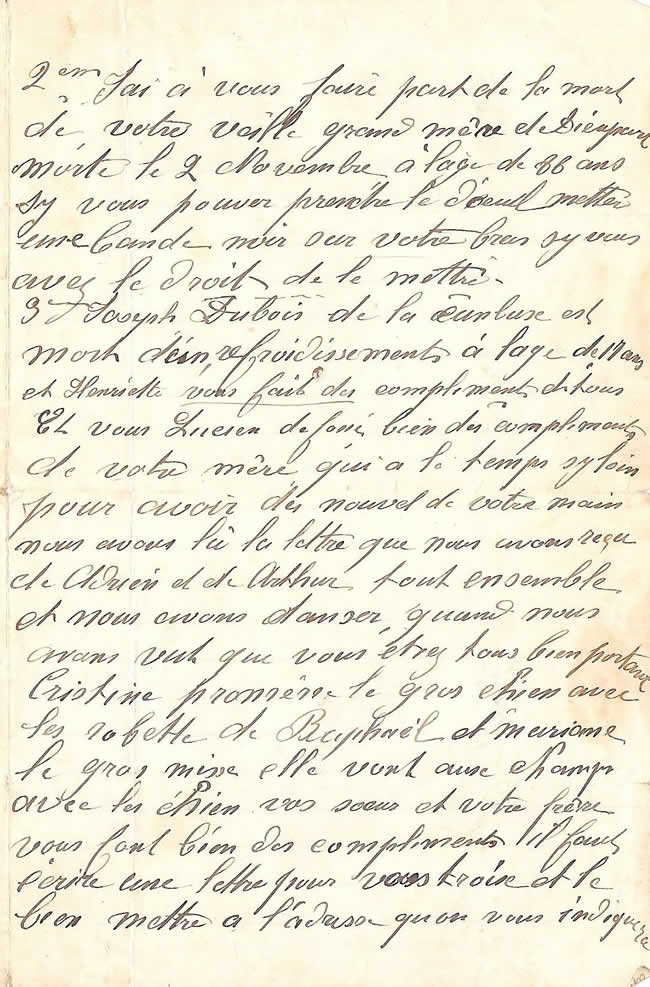 2em Jai a vous faire part de la mort
de votre veille grand mère de
morte le 2 Novembre a lage de 66 ans
sy vous pouver prendre le deeuil metter
une bande noir sur votre bras sy vous
avez le droit de le mettre.
3 Joseph Dubois de la est
mort dein refroidissements a lage de 17 ans
et Henriette vous fait des compliments a tous
Et vous Lucien bien des compliments
de votre mère qui a le temps sy loin
pour avoir des nouvel de votre main
nous avons lu la lettre que nous avons reçu
de Adrien et de Arthur tout ensemble
et nous avons danser quand nous
avons vut que vous étrez tous bien portant
Cristine promène le gros chien avec
les robette de Raphaël et mariane
le gros mine elle vont aux champs
avec les chien vos soeur et votre frère
vous font bien des compliments il faut
écrire une lettre pour vous troise et le
bien mettre a l'adresse quon vous indiquera